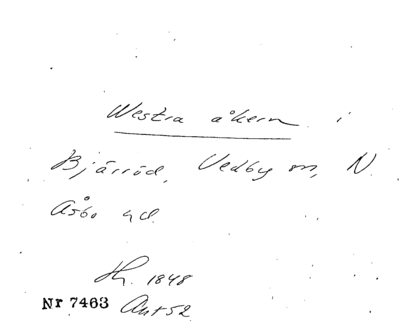 Westra åkern i
Bjärröd, Vedby sn, N.
Åsbo hd.
Hy. 1848
Nr 7463 Akt 52